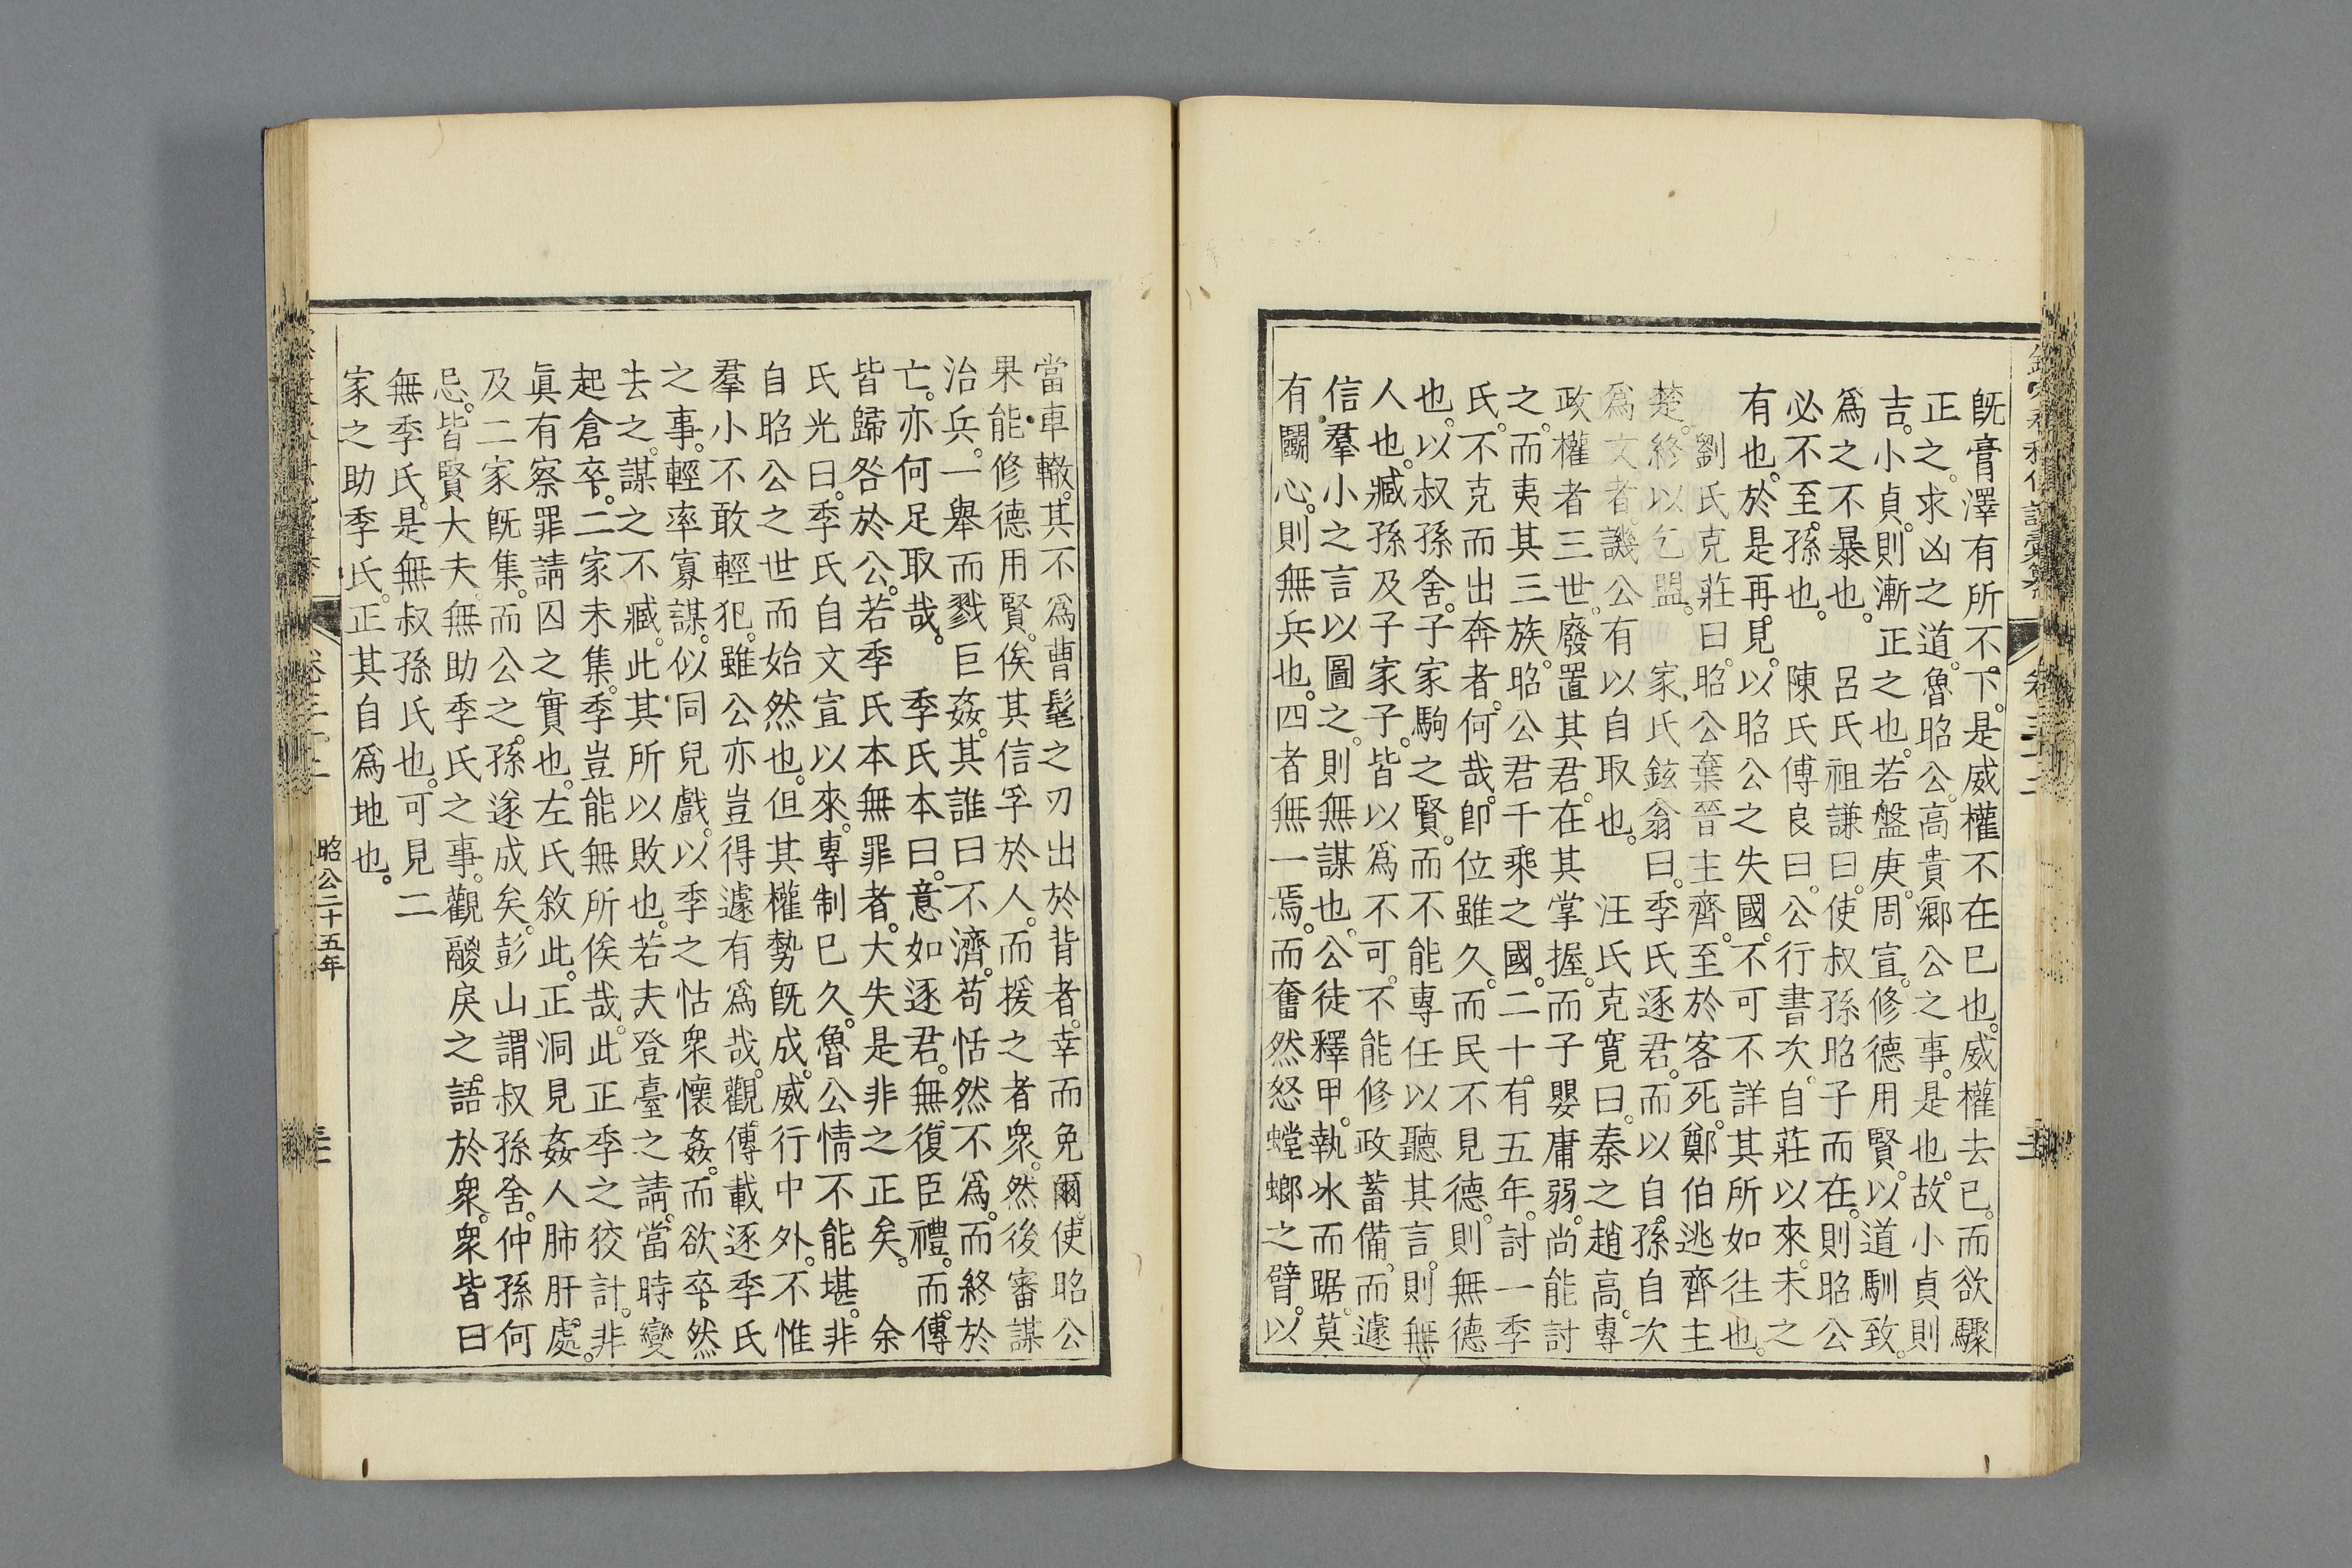 旣膏澤有所不下。是威權不在已也。威權去已。而欲驟
正之。求凶之道。魯昭公。高貴鄉公之事。是也。故小貞則
吉。小貞。則漸正之也。若盤庚。周宣。修德用賢。以道馴致。
爲之不暴也。　呂氏祖謙曰。使叔孫昭子而在。則昭公
必不至。孫也。　陳氏傅良曰。公行書次。自莊以來。未之
有也。於是再見。以昭公之失國。不可不詳其所如往也。
劉氏克莊曰。昭公棄晉主齊。至於客死。鄭伯逃齊主
楚。終以乞盟。　家氏鉉翁曰。季氏逐君。而以自孫自次
爲文者。譏公有以自取也。　汪氏克寬曰。秦之趙高。專
政權者三世。廢置其君。在其掌握。而子嬰庸弱。尚能討
之。而夷其三族。昭公君千乘之國。二十。有五年。討一季
氏。不克而出奔者。何哉。卽位雖久。而民不見德。則無德
也。以叔孫舍。子家駒之賢。而不能專任以聽其言。則無
人也。臧孫及子家子。皆以爲不可。不能修政蓄備。而遽
信羣小之言以圖之。則無謀也。公徒釋甲。執冰而踞。莫
有鬬心。則無兵也。四者無一焉。而奮然怒螳螂之臂。以
當車轍。其不爲曹髦之刃出於背者。幸而免爾。使昭公
果能修德用賢。俟其信孚於人。而援之者衆。然後審謀
治兵。一舉而戮巨姦。其誰曰不濟。苟恬然不爲。而終於
亡。亦何足取哉。　季氏本曰。意如逐君。無復臣禮。而傳
皆歸咎於公。若季氏本無罪者。大失是非之正矣。　余
氏光曰。季氏自文宣以來。專制已久。魯公情不能堪。非
自昭公之世而始然也。但其權勢旣成。威行中外。不惟
羣小不敢輕犯。雖公亦豈得遽有爲哉。觀傳載逐季氏
之事。輕率寡謀。似同兒戲。以季之怙衆懷姦。而欲卒然
去之。謀之不臧。此其所以敗也。若夫登臺之請。當時變
起倉卒。二家未集。季豈能無所俟哉。此正季之狡計。非
眞有察罪請囚之實也。左氏敘此。正洞見姦人肺肝處。
及二家旣集。而公之。孫遂成矣。彭山謂叔孫舍。仲孫何
忌。皆賢大夫。無助季氏之事。觀鬷戾之語於衆。衆皆曰
無季氏。是無叔孫氏也。可見二
家之助季氏。正其自爲地也。
昭公二十五年